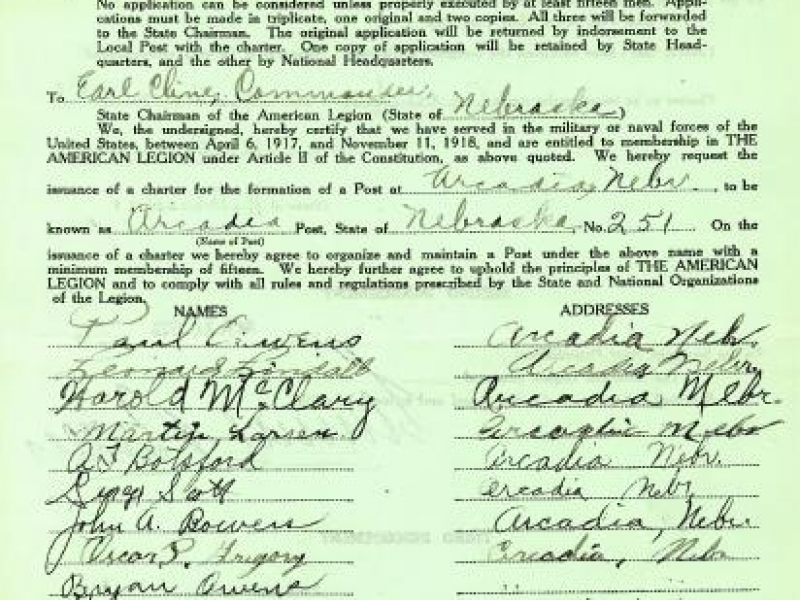 No application can be considered unless properly executed by at least fifteen men. Appli-
cations must be made in triplicate, one original and two copies. All three will be forwarded
to the State Chairman. The original application will be returned by indorsement to the
Local Post with the charter. One copy of application will be retained by State Head-
quarters, and the other by National Headquarters.
To Earl Cline, Commander,
State Chairman of the American Legion (State of Nebraska)
We, the undersigned, hereby certify that we have served in the military or naval forces of the
United States, between April 6, 1917, and November 11, 1918, and are entitled to membership in THE
AMERICAN LEGION under Article II of the Constitution, as above quoted. We hereby request the
issuance of a charter for the formation of a Post at Arcadia, Nebr. to be
known as Arcadia Post, State of Nebraska, No. 251 On the
(Name of Post)
issuance of a charter we hereby agree to organize and maintain a Post under the above name with a
minimum membership of fifteen. We hereby further agree to uphold the principles of THE AMERICAN
LEGION and to comply with all rules and regulations prescribed by the State and National Organizations
of the Legion.
NAMES ADDRESSES
Paul Owens Arcadia Nebr.
Leonard Arcadia Nebr
Harold McClary Arcadia Nebr.
Martin Larsen Arcadia Nebr
A F Botsford Arcadia Nebr.
Scott Arcadia Nebr
John A. Bowers Arcadia, Nebr.
Oscar P. Gregory Arcadia, Nebr
Bryan Owens